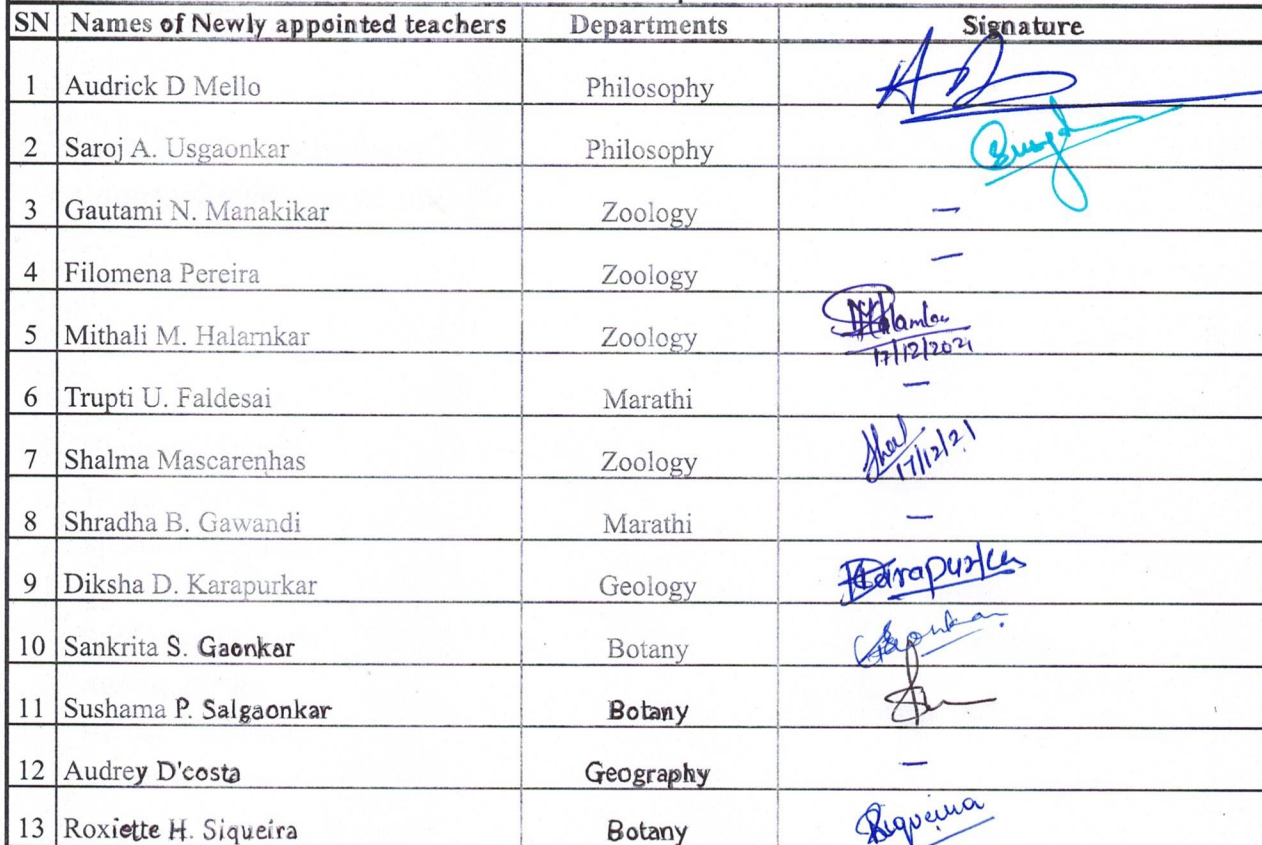 SN Names of Newly appointed teachers Departments Signature
1 Audrick D Mello Philosophy
2 Saroj A. Usgaonkar Philosophy
3 Gautami N. Manakikar Zoology —
4 Filomena Pereira Zoology —
5 Mithali M. Halarnkar Zoology
17/12/2021
6 Trupti U. Faldesai Marathi —
7 Shalma Mascarenhas Zoology
17/12/21
8 Shradha B. Gawandi Marathi —
9 Diksha D. Karapurkar Geology Karapurkar
10 Sankrita S. Gaonkar Botany Gaonkar
11 Sushama P. Salgaonkar Botany
12 Audrey D'costa Geography —
13 Roxiette H. Siqueira Botany Siqueira